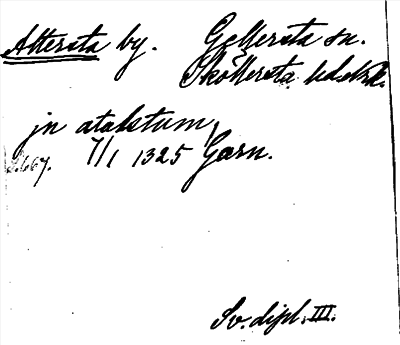 Attersta by. Gällersta sn.
Sköllersta hd.
jn atalstum,
S. 667. 7/1 1325 Garn.
Sv. dipl. III.